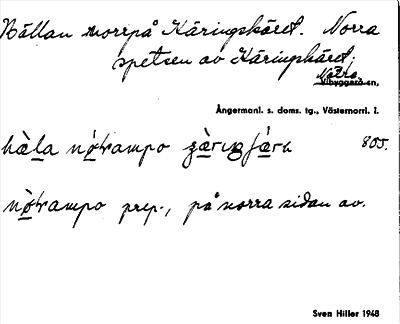 Bällan norrpå Käringskäret. Norra
spetsen av Käringskäret;
Nätra
Vibyggerå sn,
Ångermanl. s. doms. tg., Västernorrl. l.
805.
prep., på norra sidan av.
Sven Hiller 1948